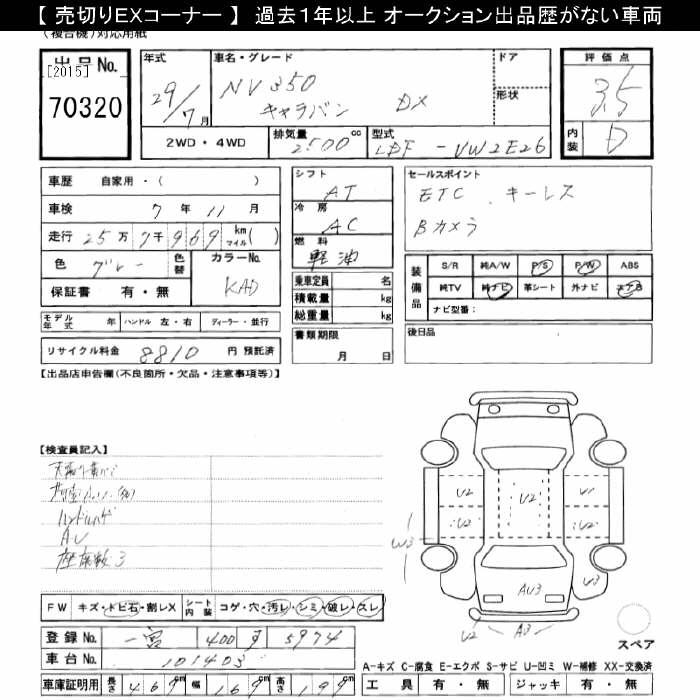 【 売切りEXコーナー 】 過去１年以上 オークション出品歴がない車両
(複合機)対応用紙
出品No. [2015] 70320
年式 29/7月
車名・グレード NV350 キャラバン DX
ドア
形状
評価点 3.5
内装 D
2WD・4WD
排気量 2500cc
型式 LDF-VW2E26
車歴 自家用・( )
車検 7年11月
走行 25万7千969 km マイル( )
色 グレー 色替
カラーNo. KAD
保証書 有・無
シフト AT
冷房 AC
燃料 軽油
乗車定員 名
積載量 kg
総重量 kg
書類期限 月 日
セールスポイント
ETC、キーレス
Bカメラ
装備品
S/R 純A/W P/S P/W ABS
純TV 純ナビ 革シート 外ナビ エアB
ナビ型番：
後日品
モデル年式 年 ハンドル 左・右 ディーラー・並行
リサイクル料金 8810 円 預託済
【出品店申告欄(不良箇所・欠品・注意事項等)】
【検査員記入】
ハンドルハゲ
座席数3
FW キズ・ドビ石・割レX シート内装 コゲ・穴・汚レ・シミ・破レ・スレ
登録No. 一宮 400 5974
車台No. 101403
車庫証明用 長さ 469cm 幅 169cm 高さ 199cm
V2 V2 V1
V2 V2 V2
W3
AU3 V3
V2 A3
スペア
A-キズ C-腐食 E-エクボ S-サビ U-凹ミ W-補修 XX-交換済
工具 有・無 ジャッキ 有・無